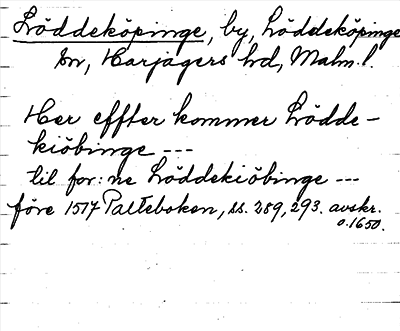 Löddeköpinge, by, Löddeköpinge
sn, Harjagers hd, Malm. l.
Her effter kommer Lödde-
kiöbinge ---
til for: ne Löddekiöbinge ---
före 1517 Palteboken, ss. 289, 293. avskr.
o. 1650.